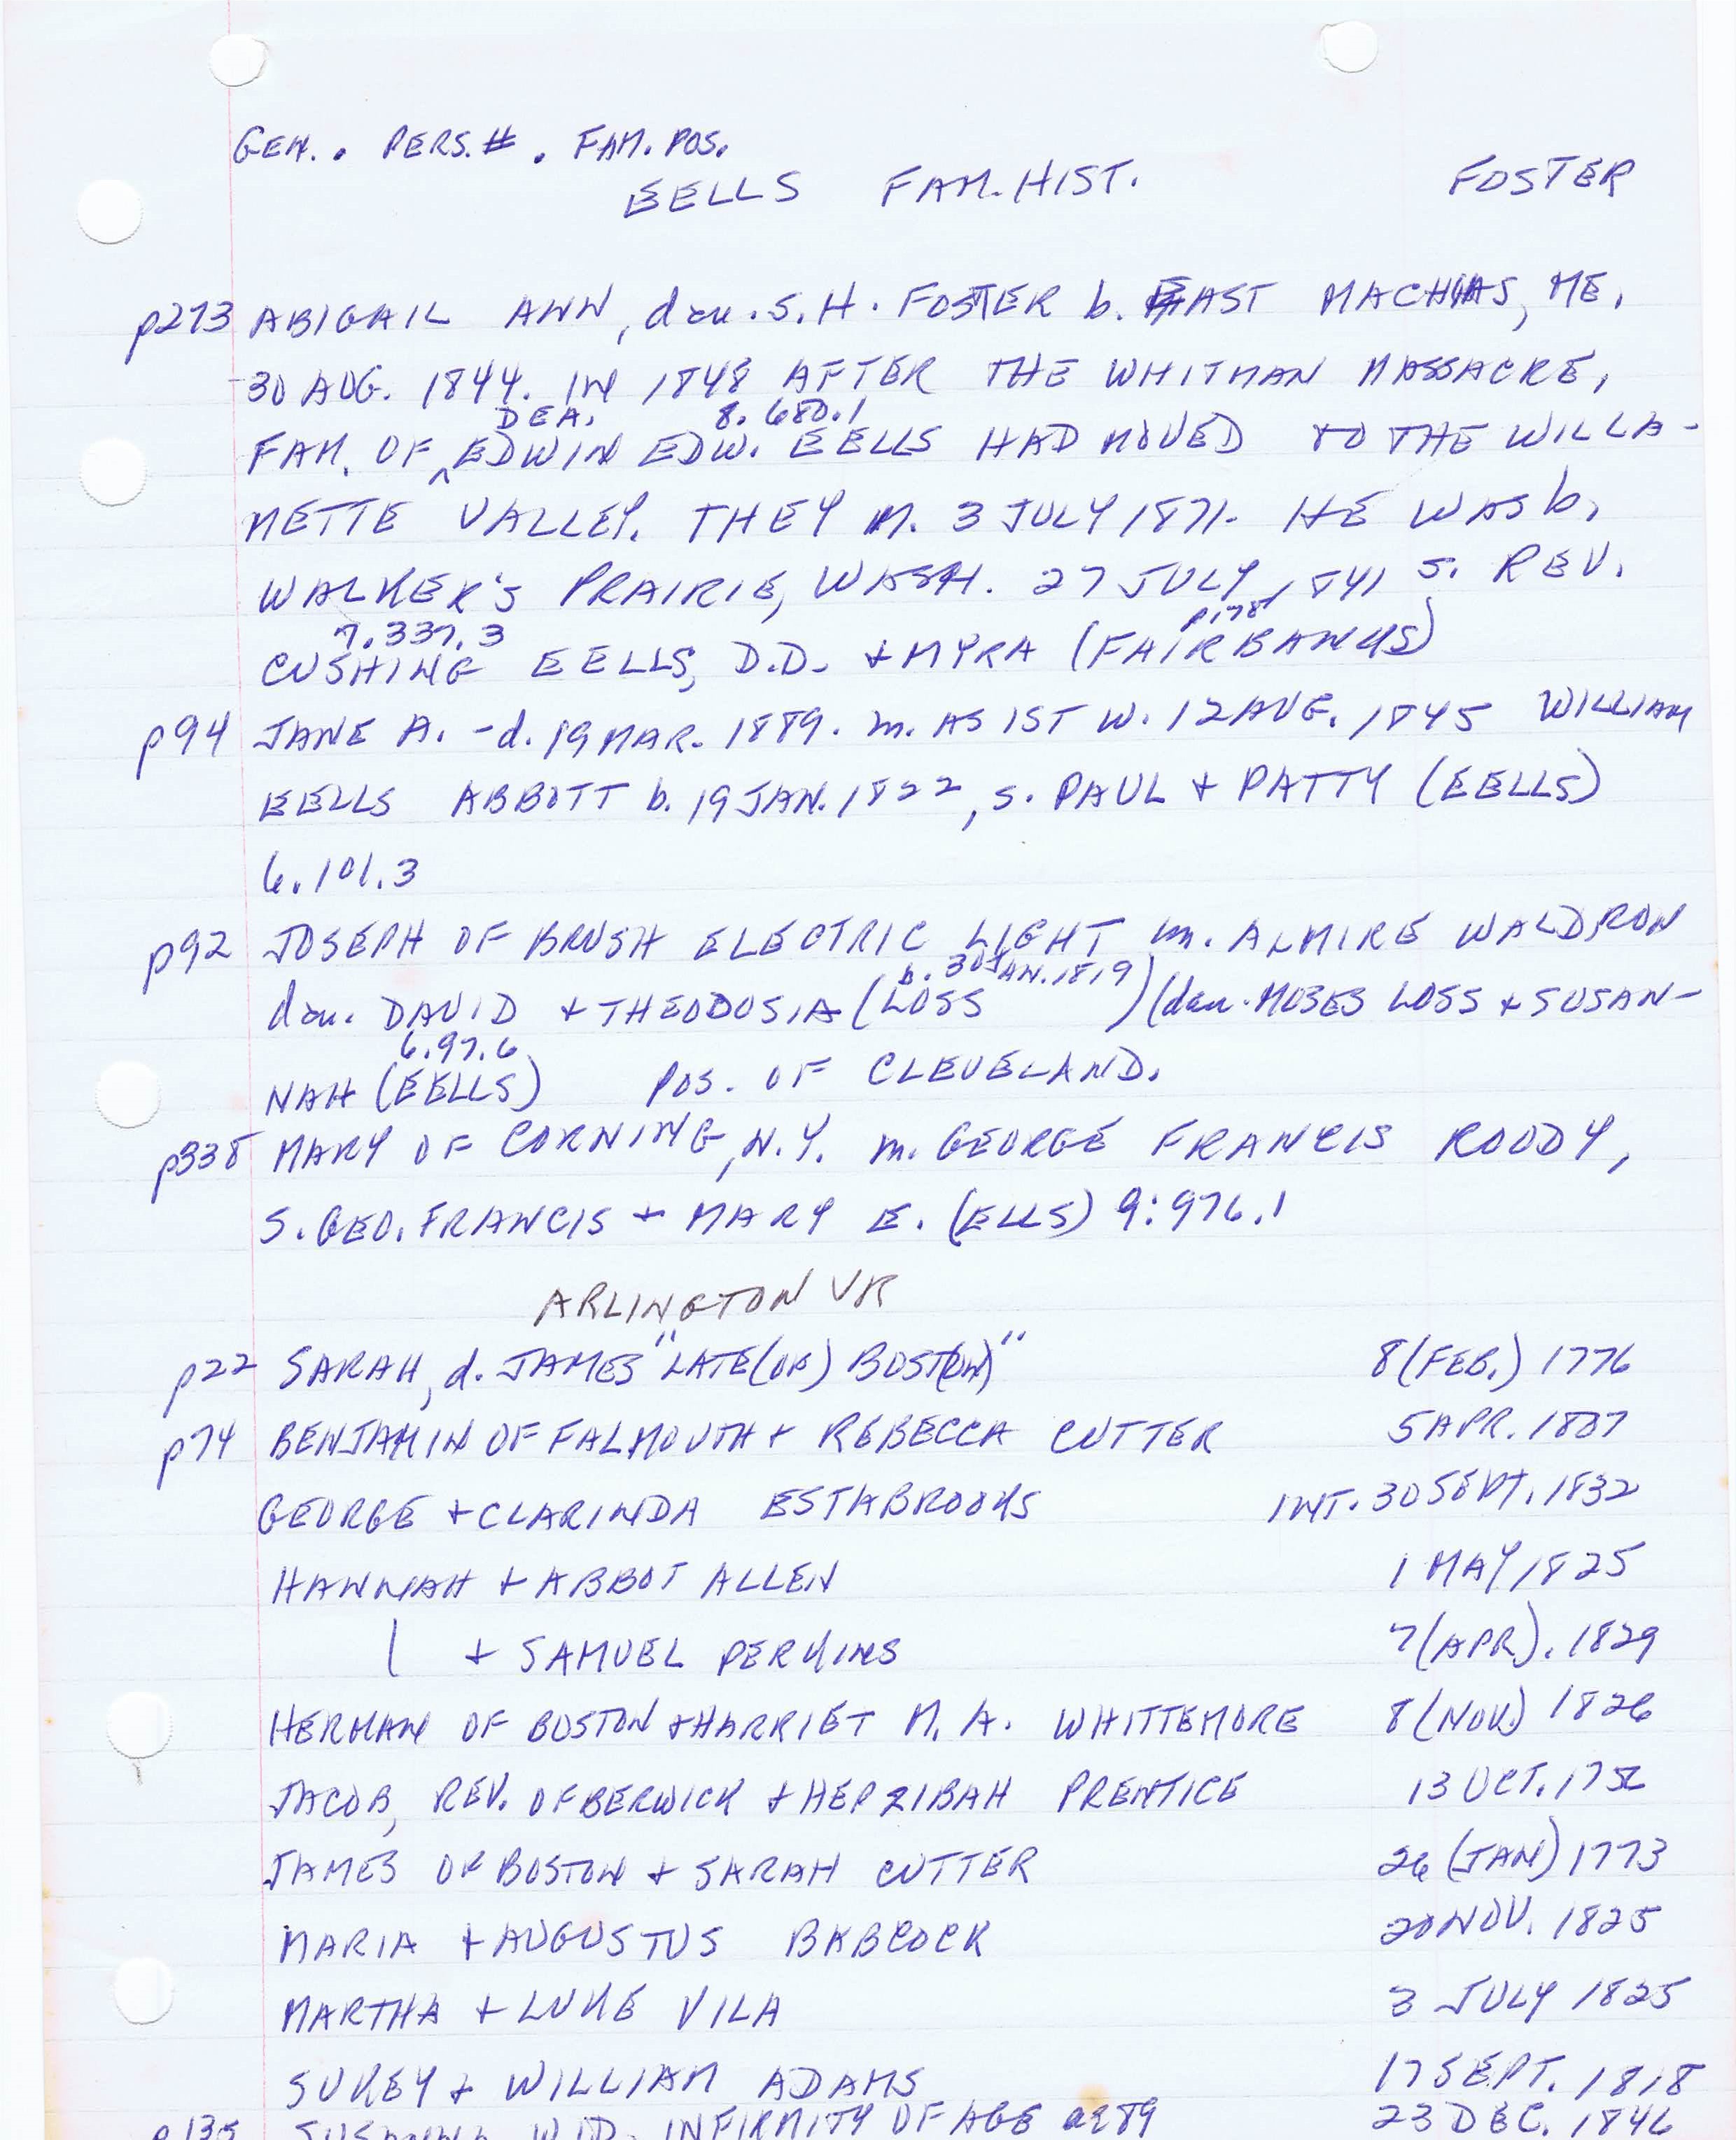 GEN. . PERS.# . FAM. POS.
EELLS FAM. HIST. FOSTER
p273 ABIGAIL ANN, dau. S.H. FOSTER b. EAST MACHIAS, ME.
30 AUG. 1844. IN 1848 AFTER THE WHITMAN MASSACRE,
DEA. 8.680.1
FAM. OF ^ EDWIN EDW. EELLS HAD MOVED TO THE WILLA-
METTE VALLEY. THEY M. 3 JULY 1871. HE WAS b.
WALKER'S PRAIRIE, WASH. 27 JULY 1841 S. REV.
7.337.3 p.178
CUSHING EELLS, D.D. + MYRA (FAIRBANKS)
p94 JANE A. - d. 19 MAR. 1889. m. AS 1ST W. 12 AUG. 1845 WILLIAM
EELLS ABBOTT b. 19 JAN. 1822, S. PAUL + PATTY (EELLS)
6.101.3
p92 JOSEPH OF BRUSH ELECTRIC LIGHT m. ALMIRE WALDRON
b. 30 JAN. 1819
dau. DAVID + THEODOSIA (LOSS ) (dau. MOSES LOSS + SUSAN-
6.97.6
NAH (EELLS) POS. OF CLEVELAND.
p338 MARY OF CORNING, N.Y. m. GEORGE FRANCIS ROODY,
S. GEO. FRANCIS + MARY E. (ELLS) 9:976.1
ARLINGTON VR
p22 SARAH, d. JAMES "LATE (OF) BOST(ON)" 8 (FEB.) 1776
p74 BENJAMIN OF FALMOUTH + REBECCA CUTTER 5 APR. 1807
GEORGE + CLARINDA ESTABROOKS INT. 30 SEPT. 1832
HANNAH + ABBOT ALLEN 1 MAY 1825
| + SAMUEL PERKINS 7 (APR). 1829
HERMAN OF BOSTON + HARRIET M. A. WHITTEMORE 8 (NOV.) 1826
JACOB, REV. OF BERWICK + HEPZIBAH PRENTICE 13 OCT. 17
JAMES OF BOSTON + SARAH CUTTER 26 (JAN) 1773
MARIA + AUGUSTUS BABCOCK 20 NOV. 1825
MARTHA + LUKE VILA 3 JULY 1825
SUKEY + WILLIAM ADAMS 17 SEPT. 1818
p135 SUSANNA WID. INFIRMITY OF AGE ae 89 23 DEC. 1846